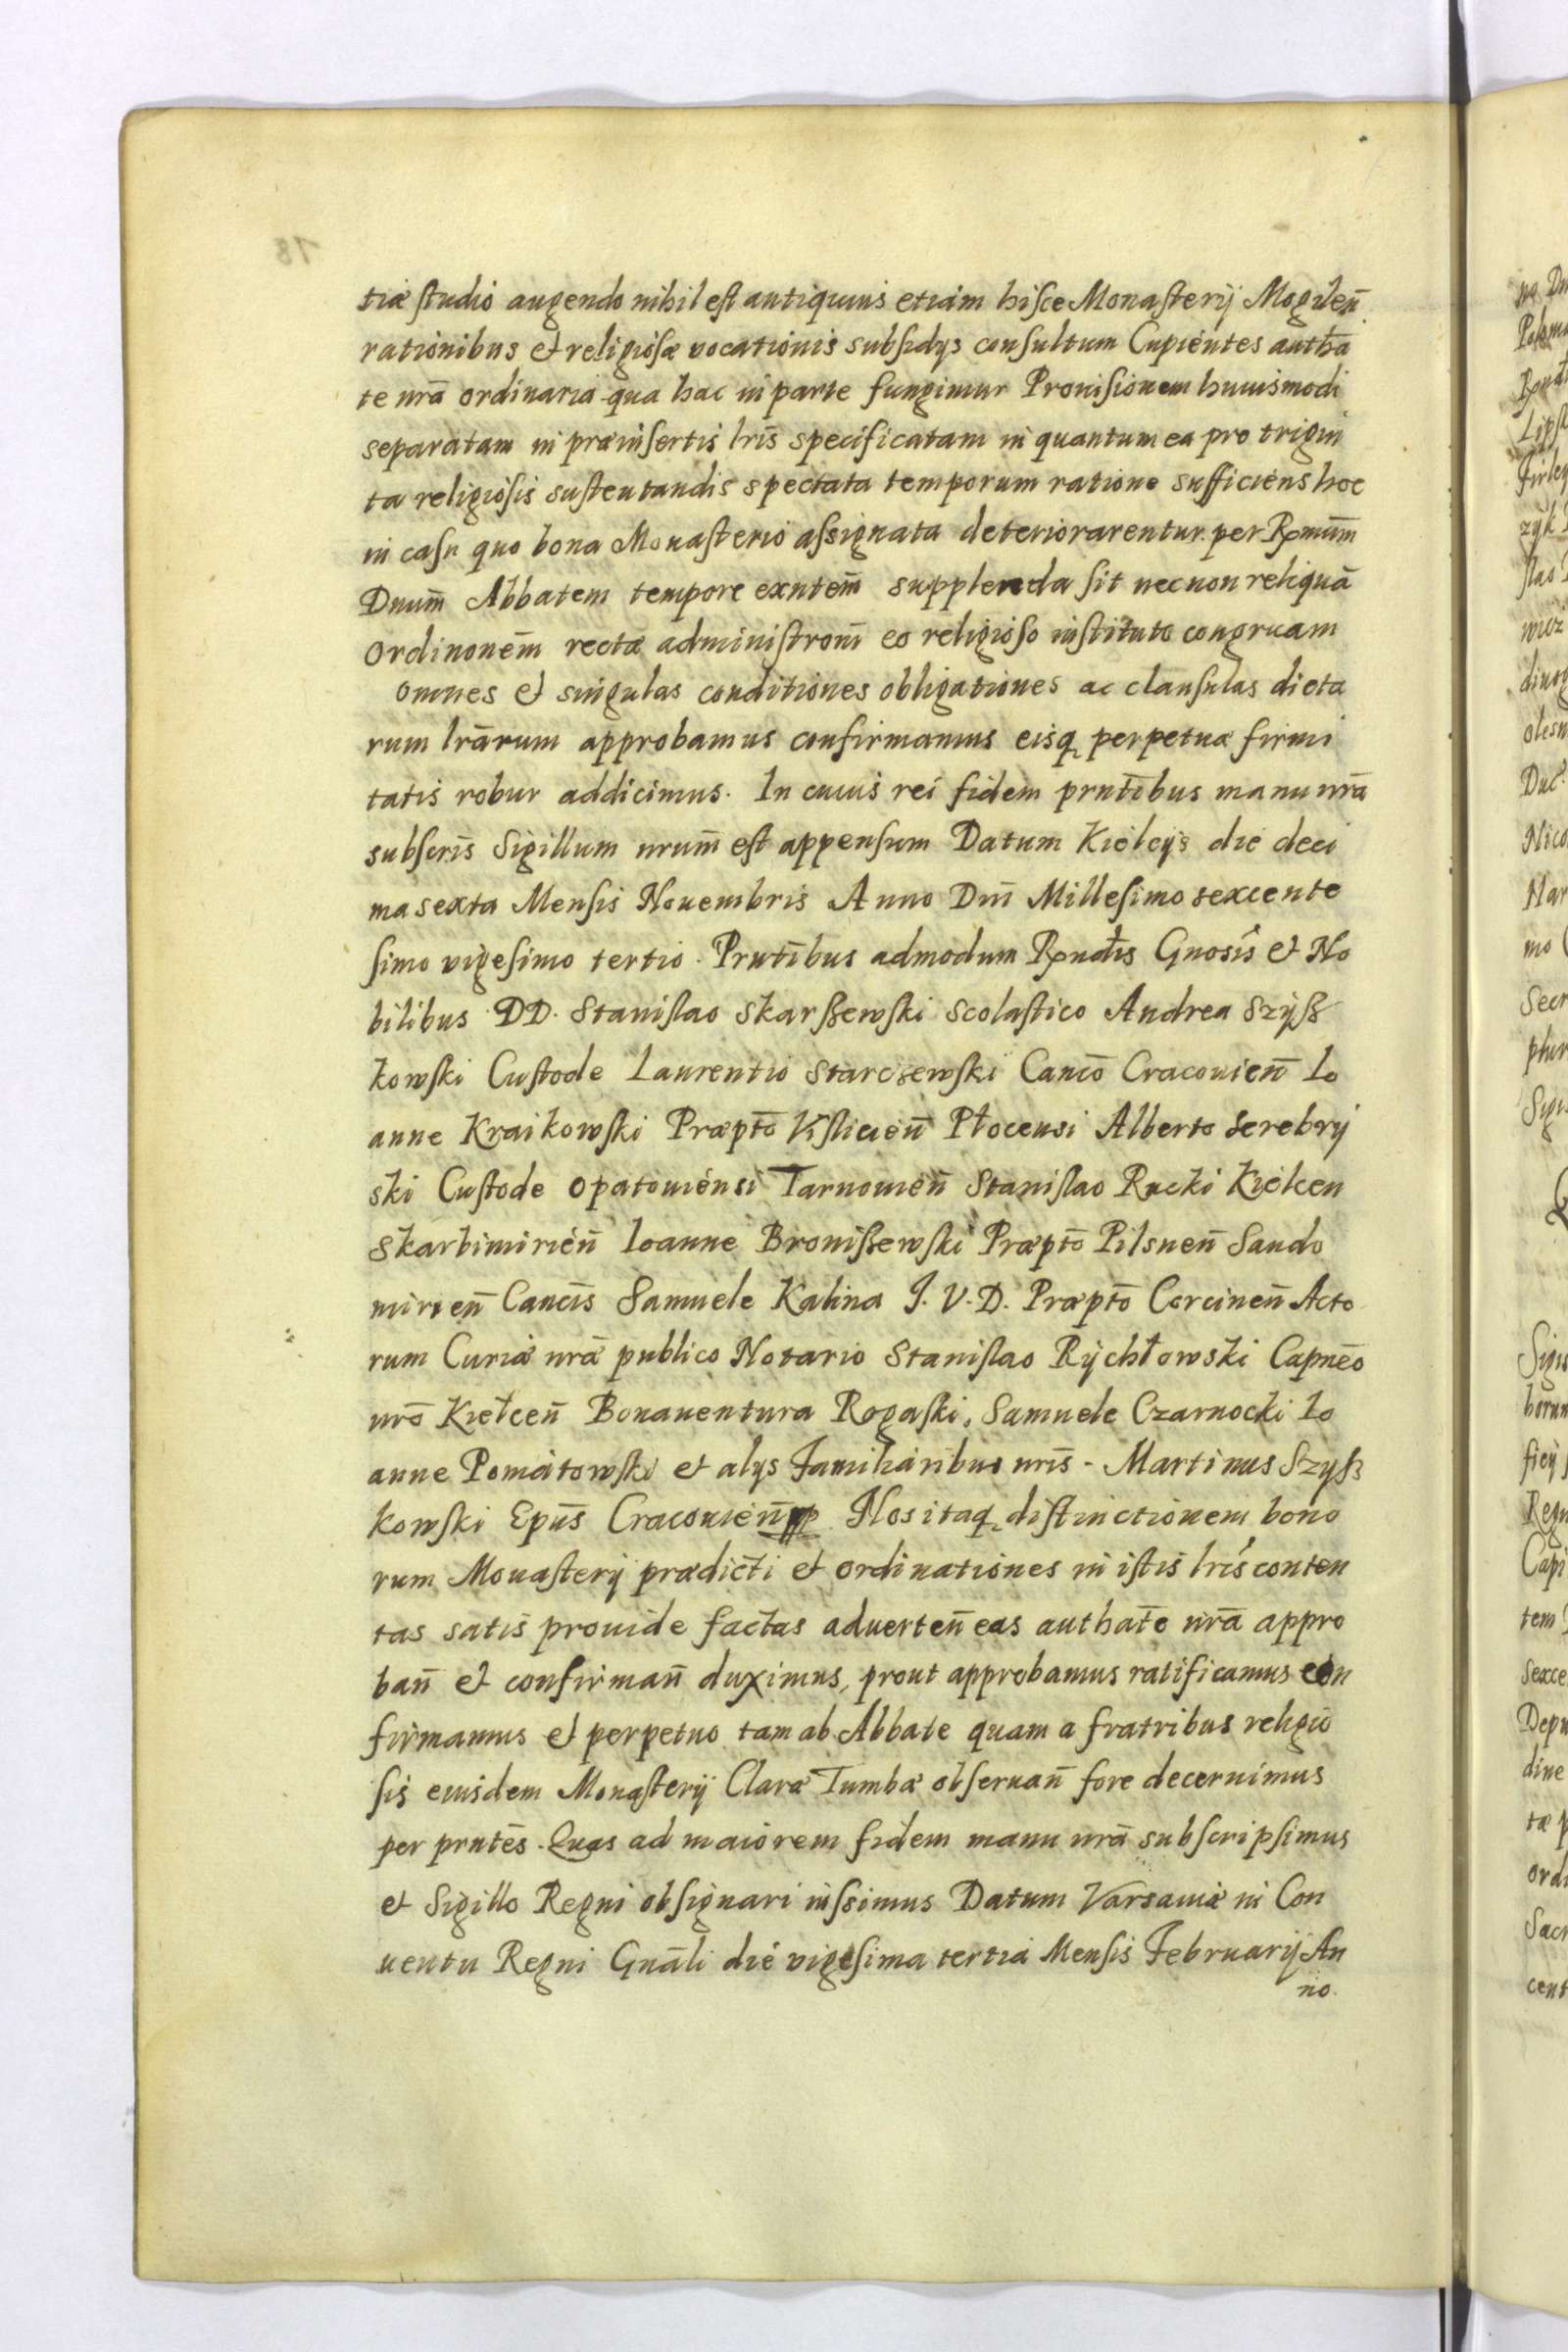 tiæ studio augendo nihil est antiquius etiam hisce Monasterij Mogilen̄
rationibus et religiosæ vocationis subsidijs consultum Cupientes auth̄a
te nr̄a ordinaria qua hac in parte fungimur Prouisionem huiusmodi
separatam in præinsertis lr̄is specificatam in quantum ea pro trigin
ta religiosis sustentandis spectata temporum ratione sufficiens hoc
in casu quo bona Monasterio assignata deteriorarentur per Rẽmum̄
Dnum̄ Abbatem tempore exñtem̄ supplenda sit necnon reliquā
Ordinonēm rectæ administronī eo religioso instituto congruam
omnes et singulas conditiones obligationes ac clausulas dicta
rum lr̄arum approbamus confirmamus eisq̨ perpetuæ firmi
tatis robur addicimus. In cuius rei fidem prñtibus manu nr̄a
subscris̄ Sigillum nrum̄ est appensum Datum Kielcijs die deci
ma sexta Mensis Nouembris Anno Dnī Millesimo sexcente
simo vigesimo tertio. Prntībus admodum Rndīs Gnosīs et No
bilibus DD. Stanislao Skarszewski Scolastico Andrea Szÿsz
kowski Custode Laurentio Starczewski Canco̅ Cracouien̄ Io
anne Kraikowski Præpto̅ Vislicien̄ Płocensi Alberto Serebrij
ski Custode Opatouiensi Tarnouien̄ Stanislao Rucki Kielcen
Skarbimirien̄ Ioanne Broniszewski Præpto̅ Pilsnen̄ Sando
mirien̄ Cancis̄ Samuele Kalina J. V. D. Præpto̅ Corcinen̄ Acto
rum Curiæ nrǣ publico Notario Stanislao Rÿchłowski Capnēo
nro̅ Kiełcen̄ Bonauentura Rogaski, Samuele Czarnocki Io
anne Poniatowski et alijs Familiaribus nris̄ - Martinus Szysz
kowski Epus̄ Cracouien̄ Nos itaq̨ distinctionem bono
rum Monasterij prædicti et ordinationes in istis lris̄ conten
tas satis prouide factas aduerten̄ eas authatē nrā appro
ban̄ et confirman̄ duximus, prout approbamus ratificamus con
firmamus et perpetuo tam ab Abbate quam a fratribus religio
sis eiusdem Monasterij Claræ Tumbæ obseruan̄ fore decernimus
per prntēs. Quas ad maiorem fidem manu nrā subscripsimus
et Sigillo Regni obsignari iussimus Datum Varsauiæ in Con
uentu Regni Gnāli die vigesima tertia Mensis Februarij An
no.